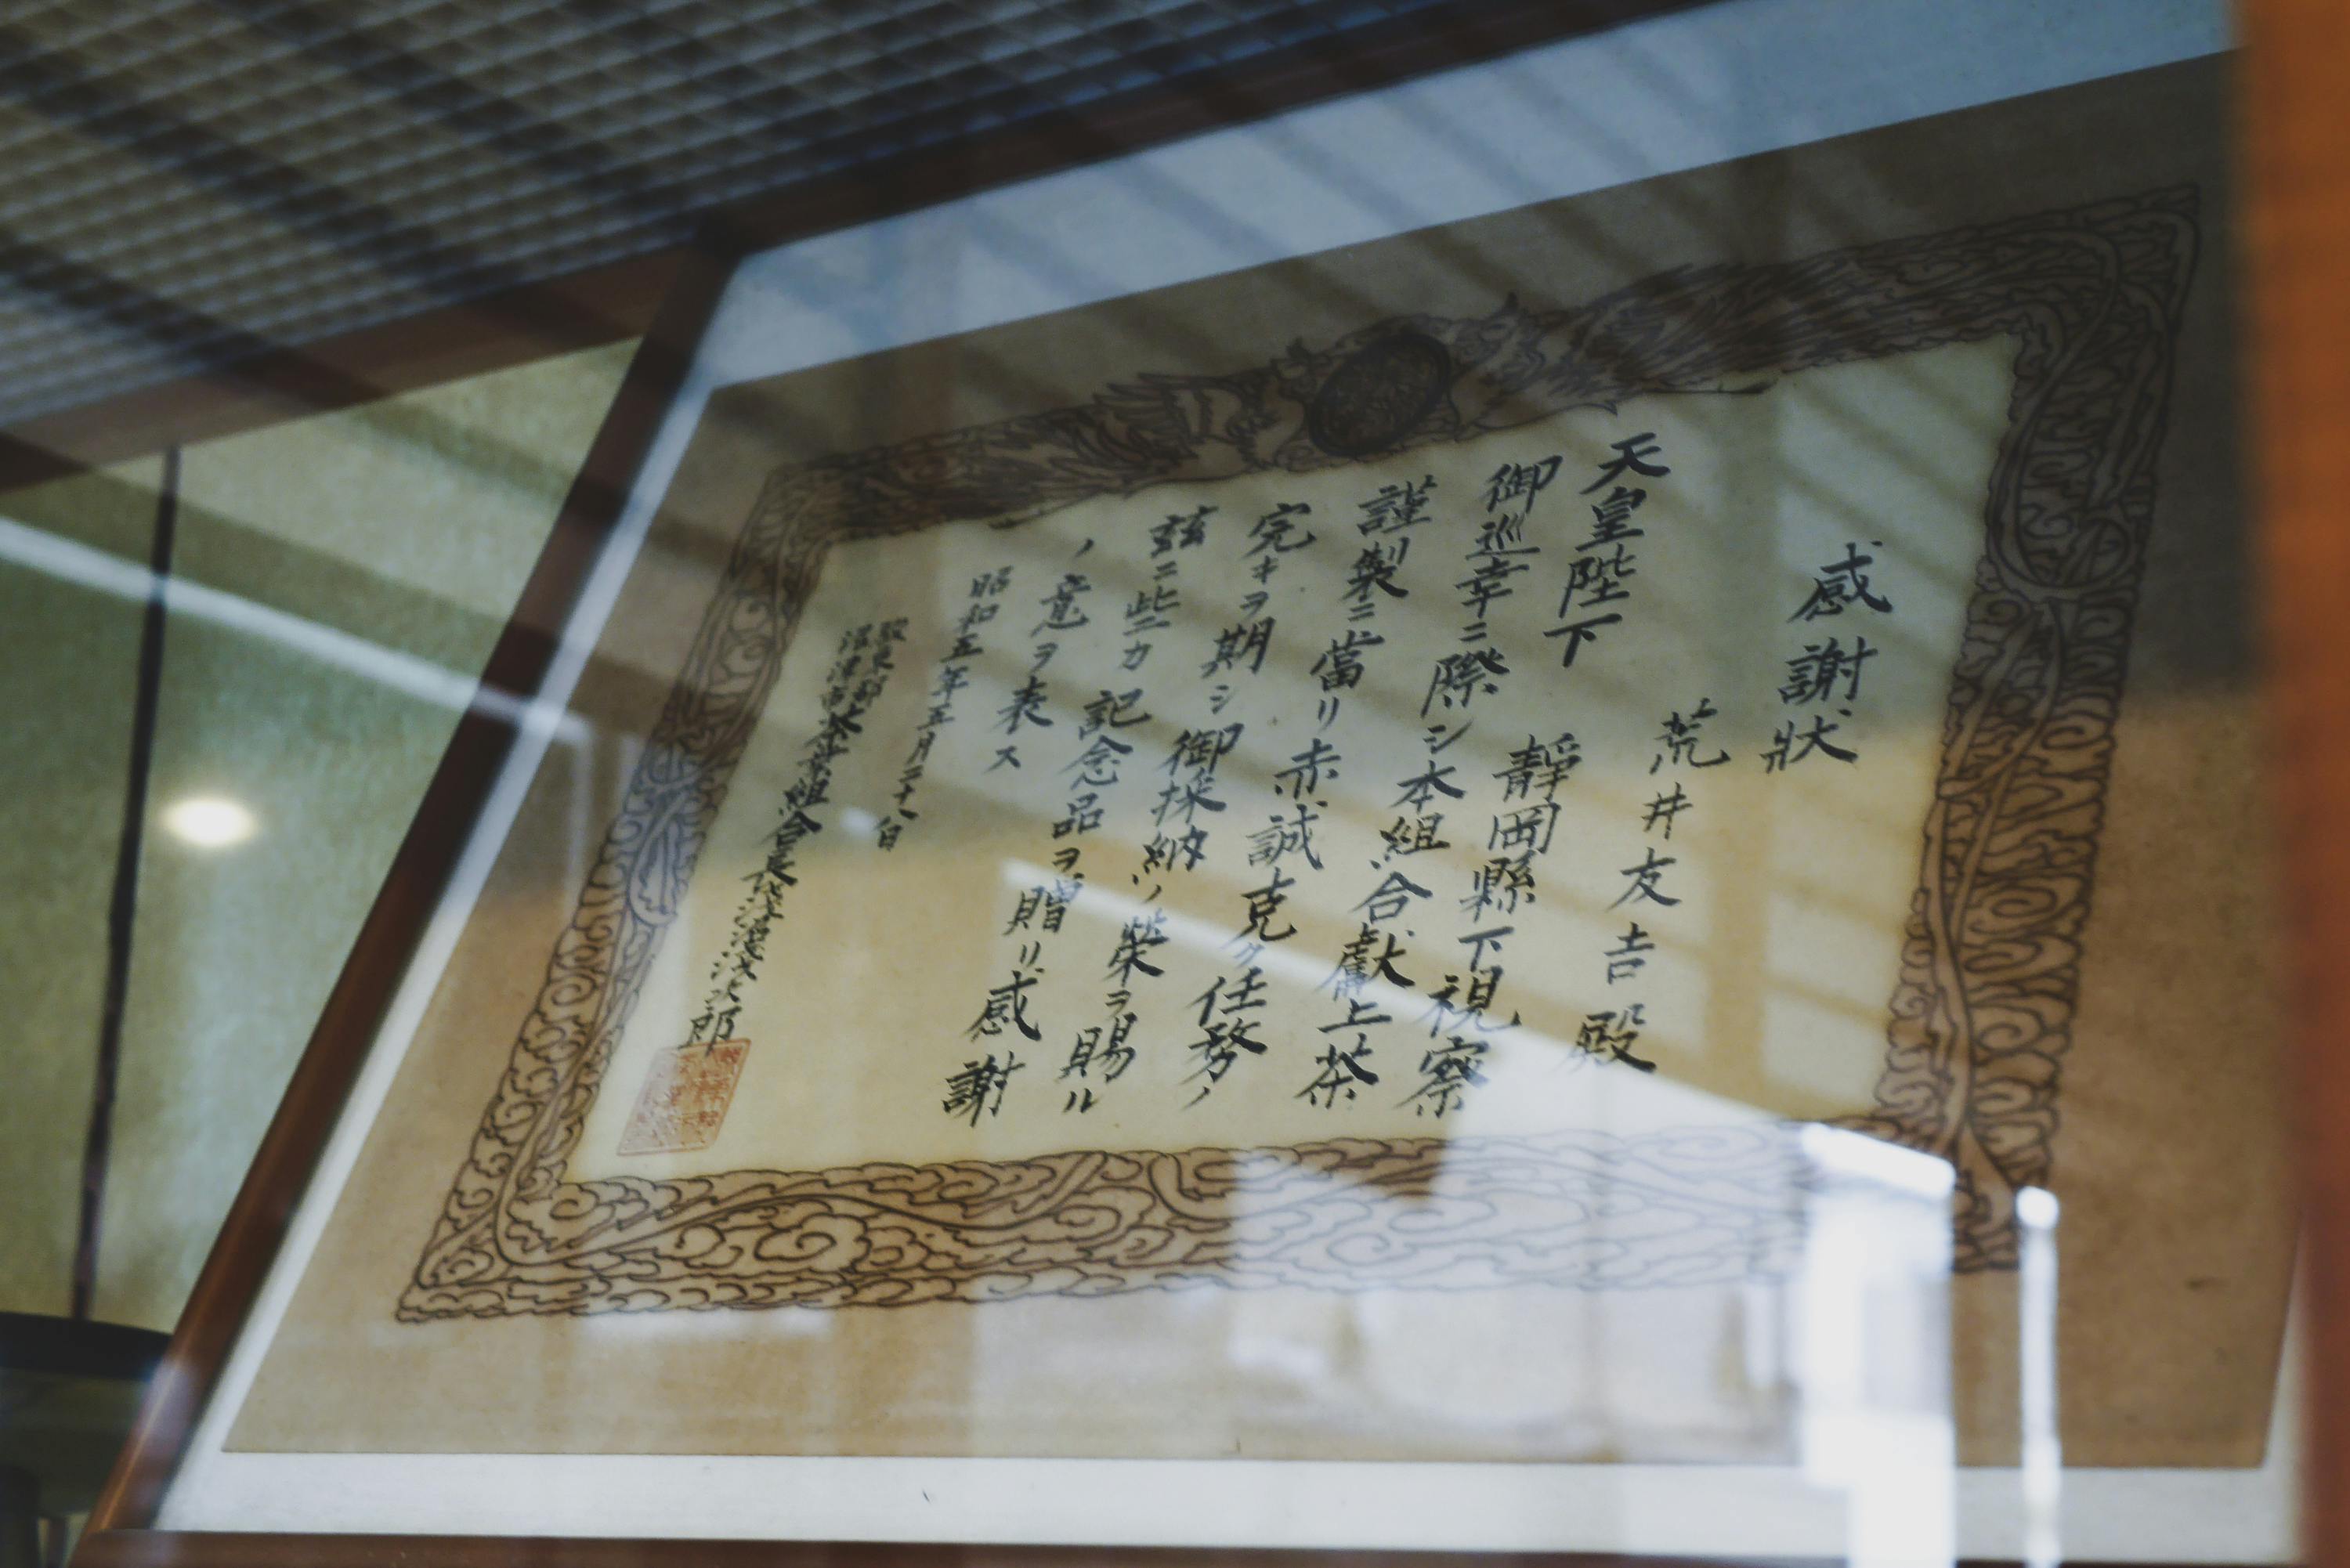 感謝狀
荒井友吉殿
天皇陛下 靜岡縣下視察
御巡幸ニ際シ本組合獻上茶
謹製ニ當リ赤誠克ク任務ノ
完キヲ期シ御採納ノ榮ヲ賜ル
玆ニ些カ記念品ヲ贈リ感謝
ノ意ヲ表ス
昭和五年五月二十八日
駿東郡
沼津市茶業組合長 次郎